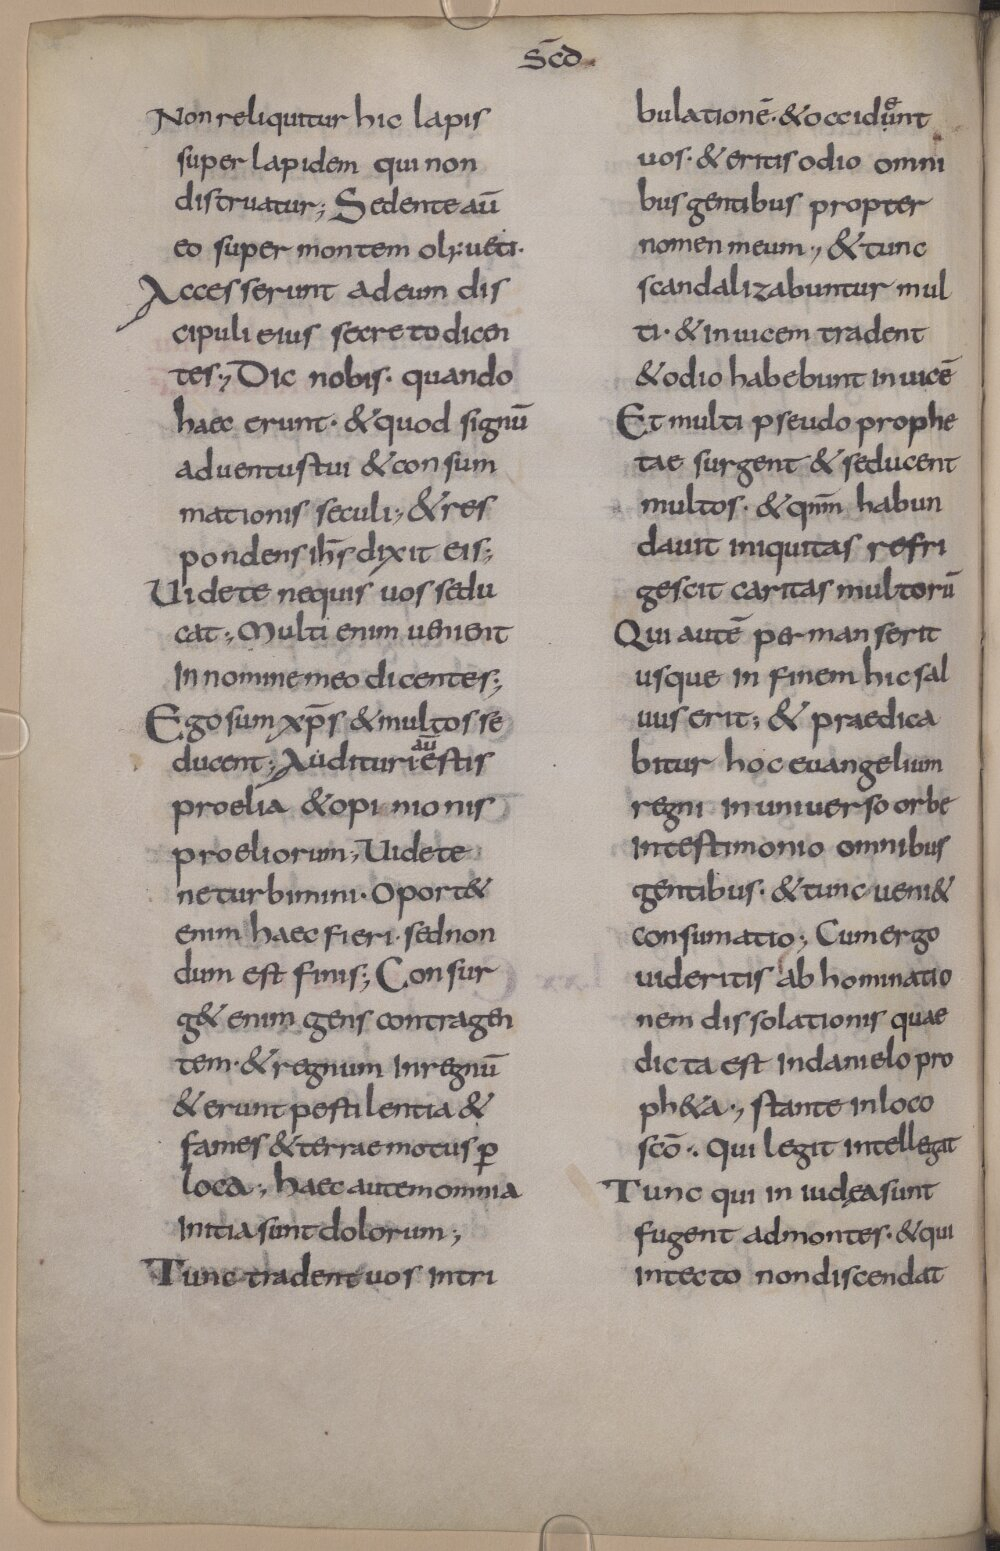 Scd̄
Non reliquitur hic lapis
super lapidem qui non
distruatur; Sedente aū
eo super montem oliueti.
Accesserunt ad eum dis
cipuli eius secreto dicen
tes., Dic nobis. quando
haec erunt. & quod signū
aduentus tui & consum
mationis seculi., & res
pondens ih̄s dixit eis;
Uidete nequis uos sedu
cat., Multi enim uenient
In nomine meo dicentes;
Ego sum xp̄s & multos se
ducent; Audituri aū estis
proelia & opinionis
proeliorum., Uidete
ne turbimini. Oport&
enim haec fieri. sed non
dum est finis; Consur
g& enim gens contra gen
tem. & regnum In regnū
& erunt pestilentia &
fames & terrae motus p̲
loca., haec autem omnia
Initia sunt dolorum;
Tunc tradent uos In tri
bulationē. & occidęnt
uos. & eritis odio omni
bus gentibus propter
nomen meum., & tunc
scandalizabuntur mul
ti. & Inuicem tradent
& odio habebunt Inuicē
Et multi pseudo prophe
tae surgent & seducent
multos. & qnm̄ habun
dauit iniquitas refri
gescit caritas multorū
Qui autē permanserit
usque in finem hic sal
uus erit; & praedica
bitur hoc euangelium
regni In uniuerso orbe
In testimonio omnibus
gentibus. & tunc ueni&
consumatio; Cum ergo
uideritis abhominatio
nem dissolationis quae
dicta est In danielo pro
ph&a., stante In loco
scō.. Qui legit Intellegat
Tunc qui in iudęa sunt
fugent ad montes. & qui
In tecto non discendat